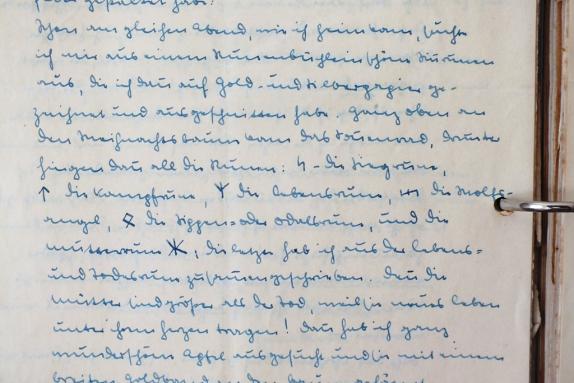 Schon am gleichen Abend, wie ich heim kam, suchte
ich mir aus einem Runenbüchlein schöne Runen
aus, die ich dann auf Gold- und Silberpapier ge-
zeichnet und ausgeschnitten habe. Ganz oben an
den Weihnachtsbaum kam das Sonnenrad, darunter
hingen dann all die Runen: ϟ - die Siegrune,
↑ die Kampfrune, ᛉ die Lebensrune, die Wolfs-
angel, ᛟ die Sippen- oder Odalrune, und die
Mutterrune ᚼ, die letzte hab ich aus der Lebens-
und Todesrune zusammengeschrieben. Denn die
Mütter sind größer als der Tod, weil sie neues Leben
unter ihrem Herzen tragen! Dann hab ich ganz
wunderschöne Äpfel ausgesucht und sie mit einem
breiten Goldband an den Baum gehängt